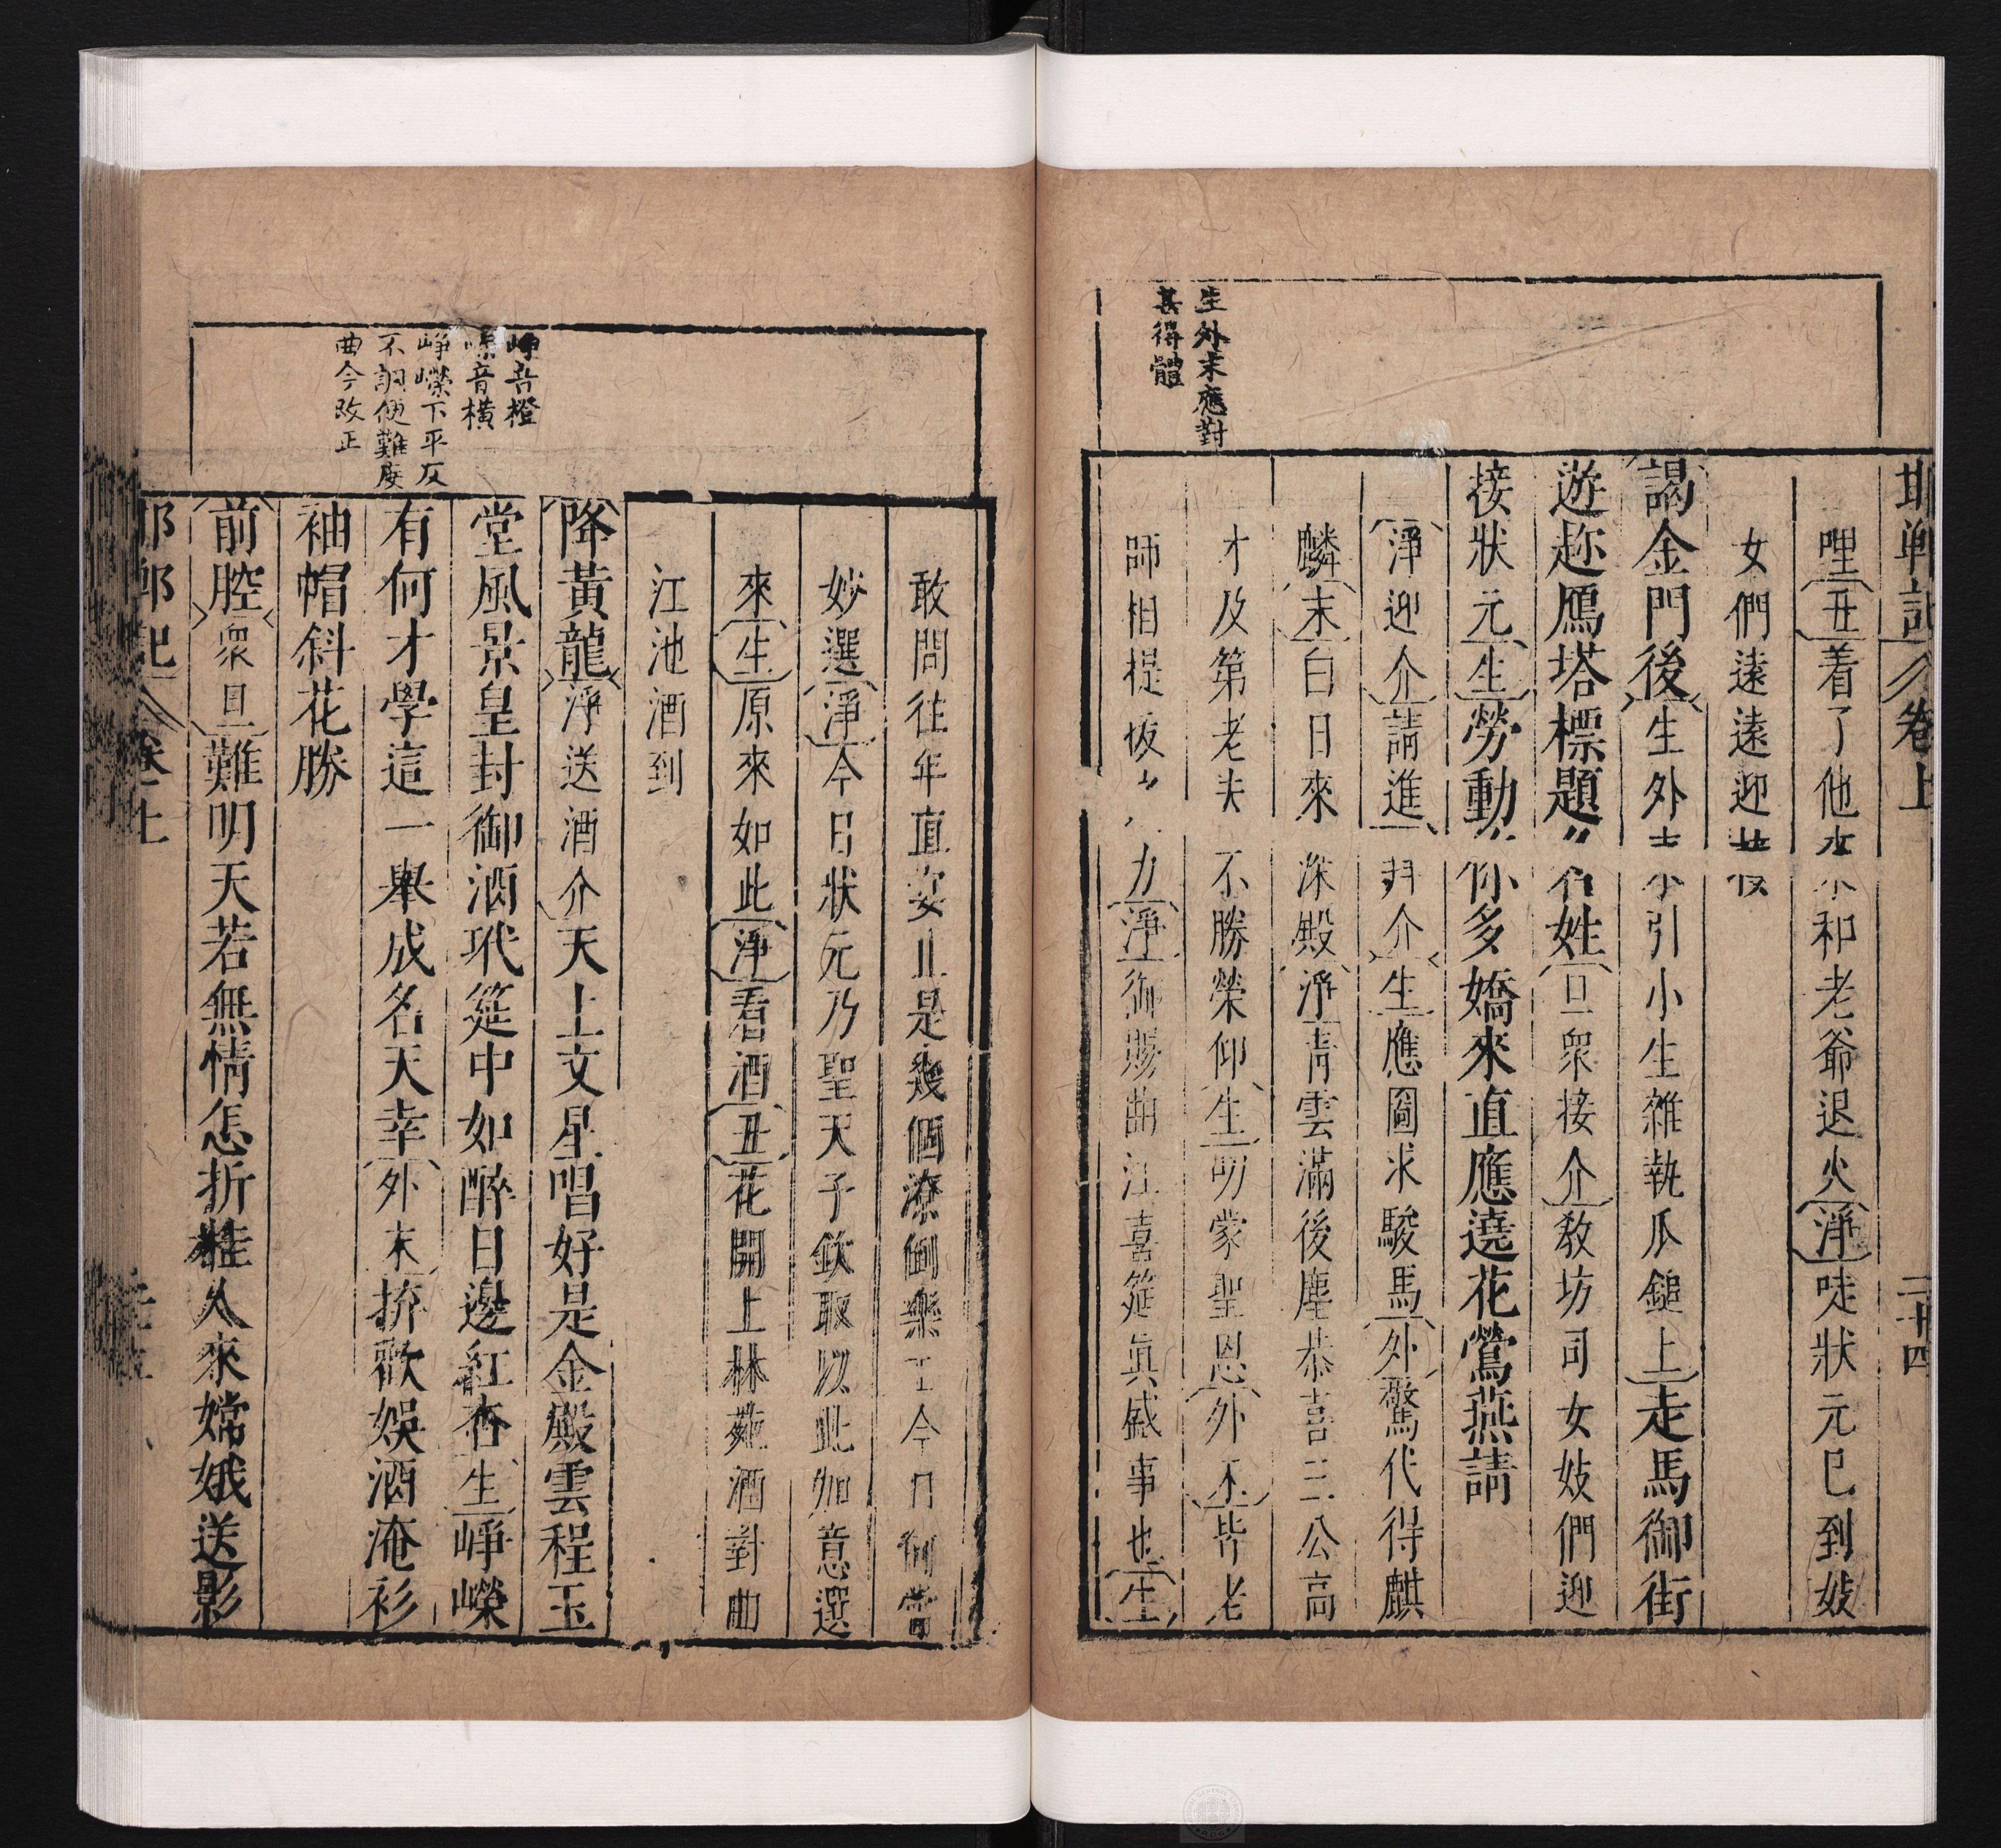 生外末應對
甚得體
邯鄲記 卷上 二十四
哩丑着了他來和老爺退火淨唗狀元已到妓
女們遠遠迎
謁金門後生外末引小生雜執瓜鎚上走馬御街
遊趂鴈塔標題〃名姓旦衆接介教坊司女妓們迎
接狀元生勞動〃你多嬌來直應遶花鶯燕請
淨迎介請進拜介生應圖求駿馬外驚代得麒
麟末白日來深殿淨青雲滿後塵恭喜三公高
才及第老夫不勝榮仰生叨蒙聖恩外末皆老
師相提拔〃力淨御賜曲江喜筵眞盛事也生
崢音橙
嶸音橫
崢嶸下平反
不調便難度
曲今改正
敢問往年直宴止是幾個潦倒樂工今日何當
妙選淨今日狀元乃聖天子欽取以此加意選
來生原來如此淨看酒丑花開上林苑酒對曲
江池酒到
降黃龍淨送酒介天上文星唱好是金殿雲程玉
堂風景皇封御酒玳筵中如醉日邊紅杏生崢嶸
有何才學這一舉成名天幸外末拚歡娛酒淹衫
袖帽斜花勝
前腔衆旦難明天若無情怎折桂人來嫦娥送影
邯鄲記 卷上